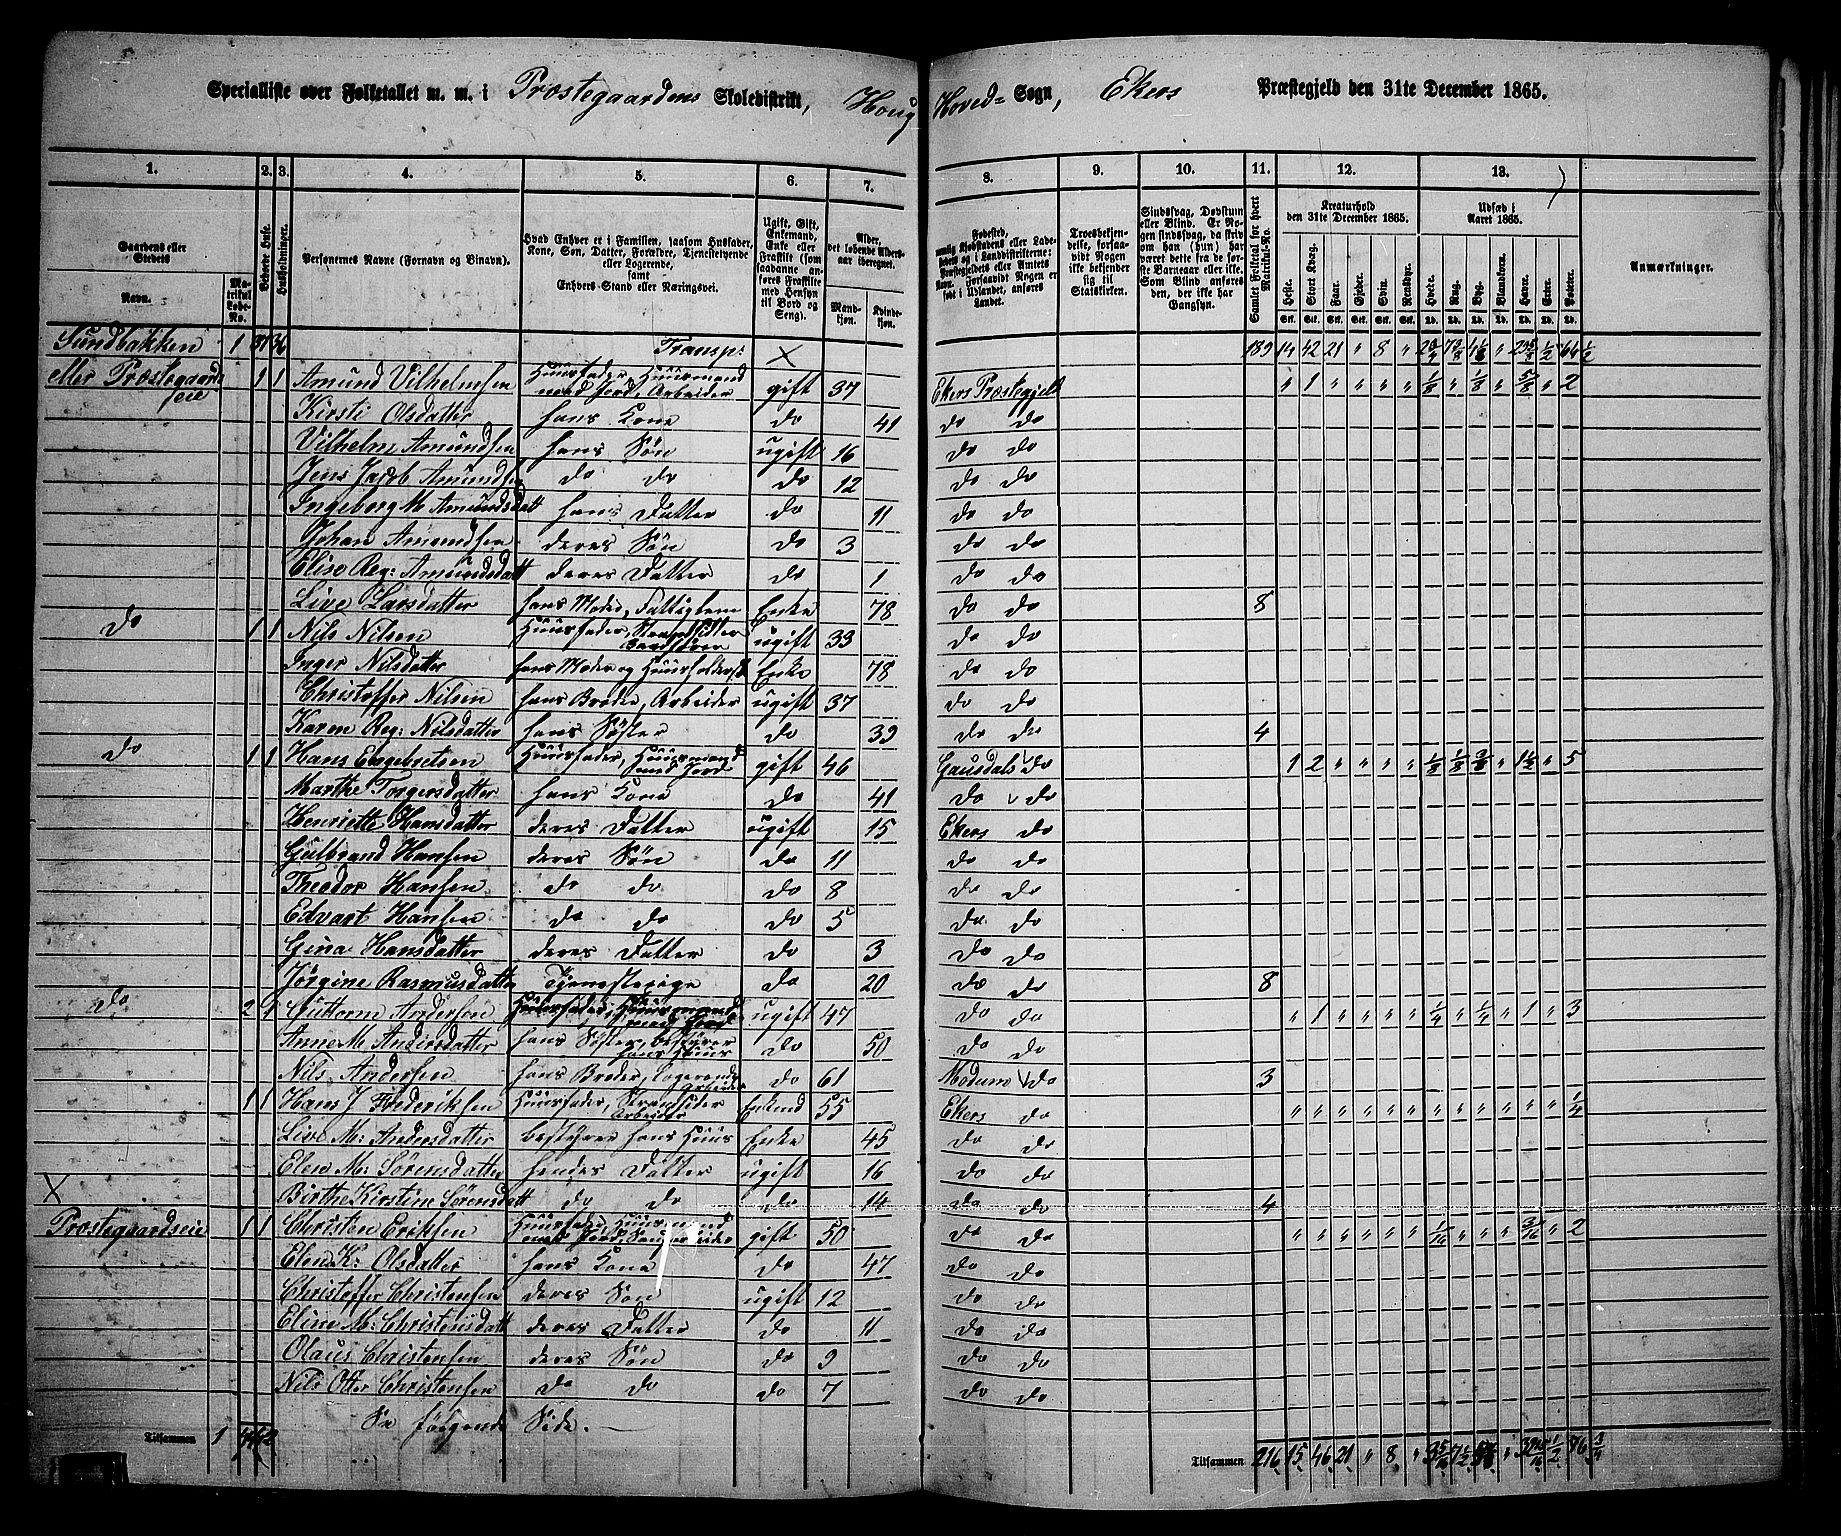 Specialliste over Folketallet m. m. i Præstegaardens Skoledistrikt, Houg Hoved= Sogn, Ekers Præstegjeld den 31te December 1865.
1. 2. 3. 4. 5. 6. 7. 8. 9. 10. 11. 12. 13.
Gaardens eller Stedets
Navn. Matrikul Løbe-No.
Beboede Huse.
Husholdninger.
Personernes Navne (Fornavn og Binavn).
Hvad Enhver er i Familien, saasom Husfader, Kone, Søn, Datter, Forældre, Tjenestetyende eller Logerende, samt Enhvers Stand eller Næringsvei.
Ugift, Gift, Enkemand, Enke eller Fraskilt (som saadanne anføres Fraskilte med Hensyn til Bord og Seng).
Alder, det løbende Aldersaar iberegnet.
Mandkjøn. Kvindekjøn.
Fødested,
Troesbekjendelse, forsaavidt Nogen ikke bekjender sig til Statskirken.
Sindssvag, Døvstum eller Blind. Er Nogen sindssvag, da skriv om han (hun) har været dette fra de første Barneaar eller ikke. Som Blind anføres den, der ikke har Gangsyn.
Samlet Folketal for hvert Matrikul-No.
Kreaturhold den 31te December 1865.
Heste. Stort Kvæg. Faar. Gjeder. Sviin. Rensdyr.
Udsæd i Aaret 1865.
Hvede. Rug. Byg. Blandkorn. Havre. Erter. Poteter.
Anmærkninger.
Sundbakken 1 37 36 Transp: 189 14 42 21 " 8 "
eller Præstegaardseie 1 1 Amund Vilhelmsen Huusfader, Huusmand med Jord, Arbeider gift 37 Ekers Præstegjeld " 1 " " " " 1/8 " 1/8 " 5/8 " 2
Kirsti Olsdatter hans Kone do 41 do do
Vilhelm Amundsen hans Søn ugift 16 do do
Jens Jacob Amundsen do do do 12 do do
Ingeborg M. Amundsdatt hans Datter do 11 do do
Johan Amundsen deres Søn do 3 do do
Elise Reg: Amundsdatt deres Datter do 1 do do
Live Larsdatter hans Moder, Fattiglem Enke 78 do do 8
do 1 1 Nils Nilsen Huusfader, Strandsidder ugift 33 do do
Inger Nilsdatter hans Moder og Huusholderske Enke 78 do do
Christoffer Nilsen hans Broder, Arbeider ugift 37 do do
Karen Reg: Nilsdatter hans Søster do 39 do do 4
do 1 1 Hans Engebretsen Huusfader, Huusmand med Jord gift 46 Gausdals do 1 2 " " " " 1/8 1/8 3/8 " 1 1/2 " 5
Marthe Torgersdatter hans Kone do 41 do do
Henriette Hansdatter deres Datter ugift 15 Ekers do
Gulbrand Hansen deres Søn do 11 do do
Theodor Hansen do do do 8 do do
Edvart Hansen do do do 5 do do
Gina Hansdatter deres Datter do 3 do do
Jørgine Rasmusdatter Tjenestepige do 20 do do 8
do 2 1 Guttorm Andersen Huusfader, Huusmand med Jord ugift 47 do do " 1 " " " " 1/4 " 1/4 " 1 " 3
Anne M Andersdatter hans Søster, bestyrer hans Huus do 50 do do
Nils Andersen hans Broder, Logerende arbeider do 61 Modum do 3
1 1 Hans J Frederiksen Huusfader, Strandsider Arbeider Enkmd 55 Ekers do " " " " " " " " " " " " 1/4
Live M: Andersdatter bestyrer hans Huus Enke 45 do do
Elen M: Sørensdatter hendes Datter ugift 16 do do
Birthe Kirstine Sørensdatt do do do 14 do do 4
Præstegaardseie 1 1 Christen Eriksen Huusfader, Huusmand med Jord, gift 50 do do " " " " " " 1/16 " " " 3/16 " 2
Elen K: Olsdatter hans Kone do 47 do do
Christoffer Christensen deres Søn ugift 12 do do
Eline M: Christensdatt deres Datter do 11 do do
Olaus Christensen deres Søn do 9 do do
Nils Otter Christensen do do do 7 do do
Se følgende Side.
Tilsammen 1
Tilsammen 216 15 46 21 " 8 "